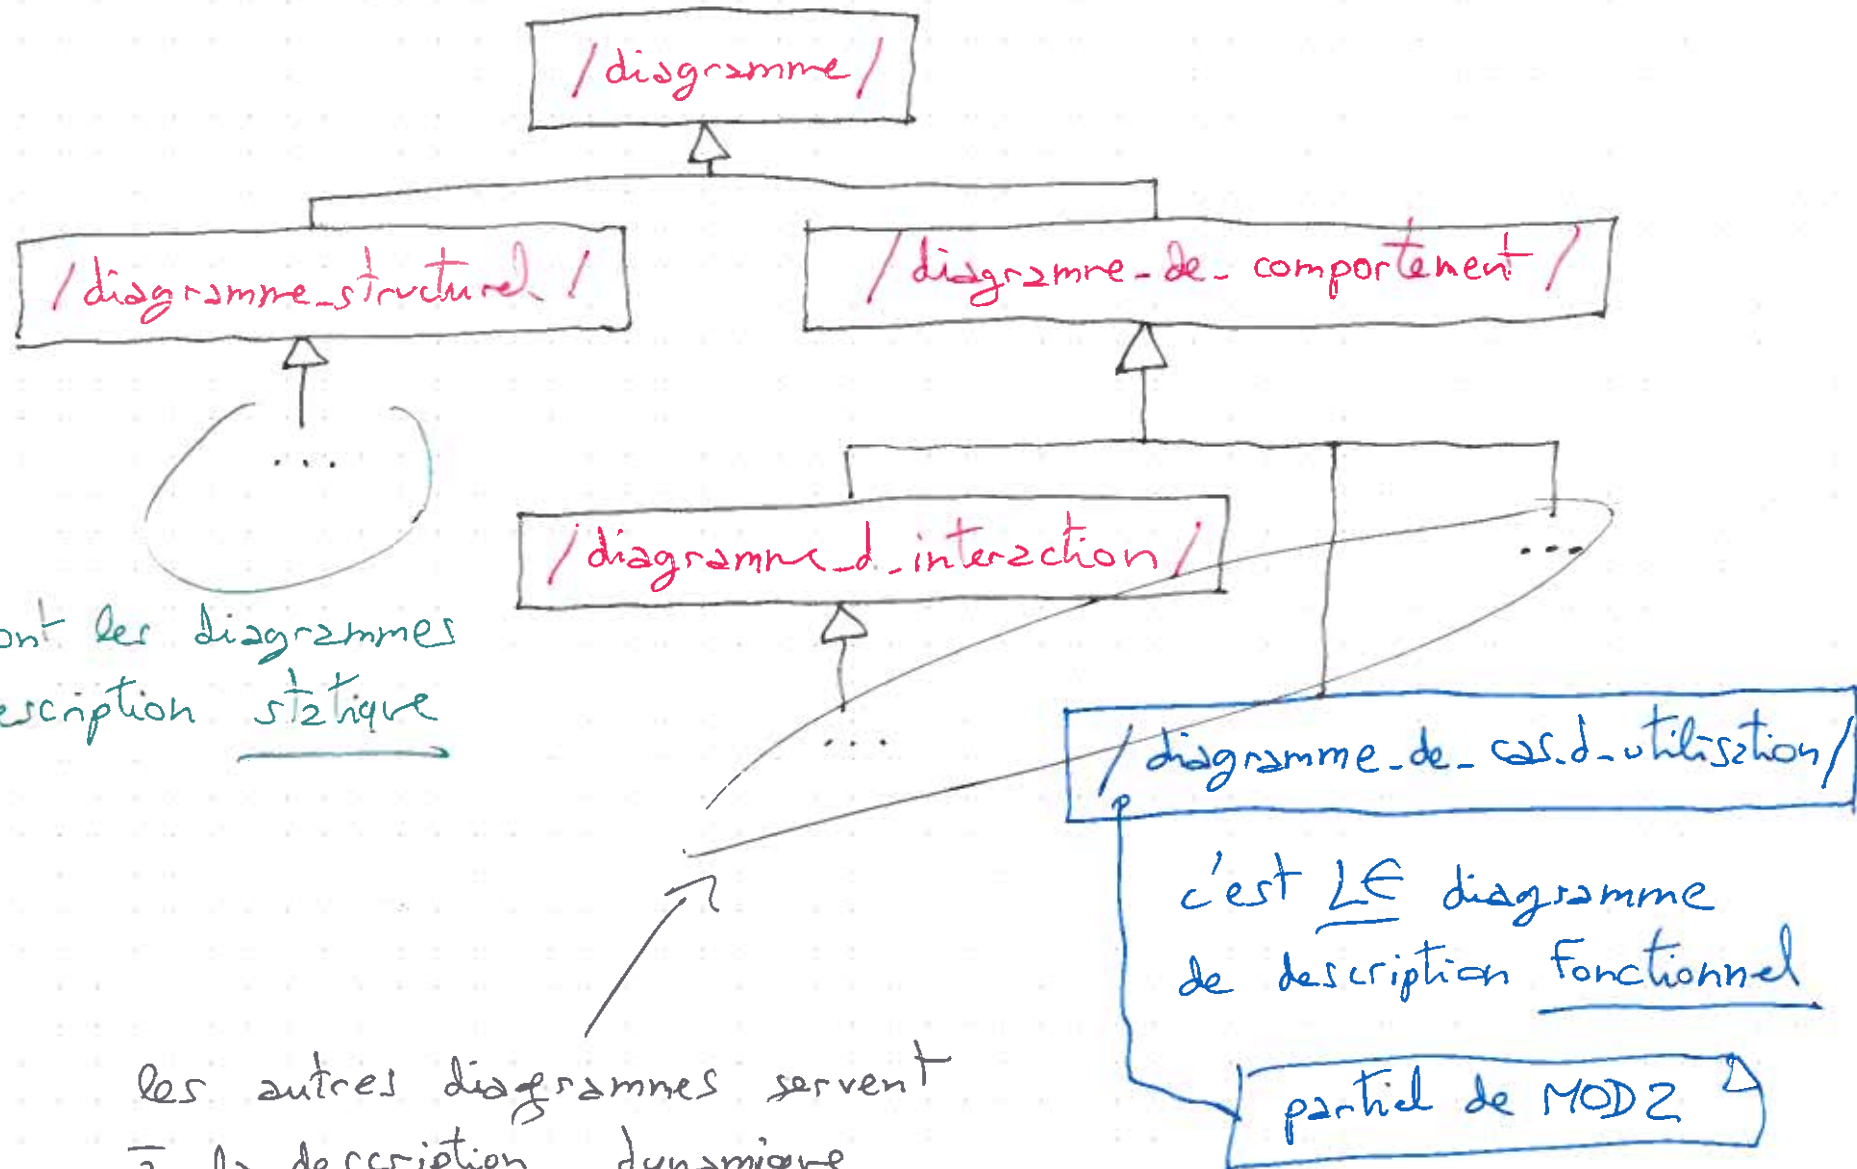 /diagramme/
/diagramme_structurel/
/diagramme_de_comportement/
...
/diagramme_d_interaction/
...
ont les diagrammes
escription statique
...
/diagramme_de_cas_d_utilisation/
c'est LE diagramme
de description Fonctionnel
les autres diagrammes servent
à la description dynamique
partiel de MOD2